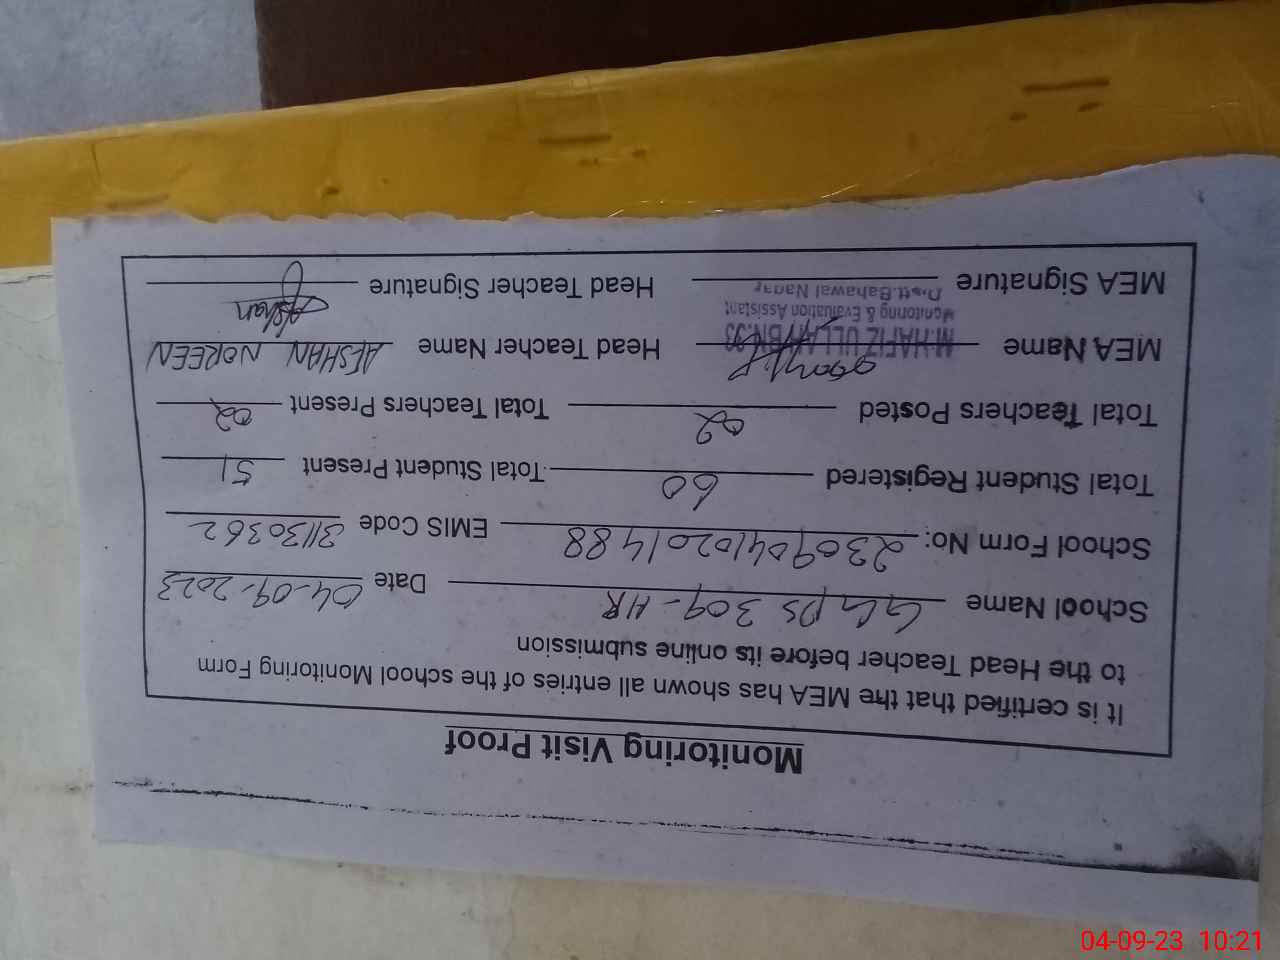 Monitoring Visit Proof
It is certified that the MEA has shown all entries of the school Monitoring Form
to the Head Teacher before its online submission
School Name GGPS 309-HR Date 04-09-2023
School Form No: 23090410201488 EMIS Code 31130362
Total Student Registered 60 Total Student Present 51
Total Teachers Posted 02 Total Teachers Present 02
MEA Name M.HAFIZ ULLAH BN.93 Head Teacher Name AFSHAN NOREEN
Monitoring & Evaluation Assistant
Distt.Bahawal Nagar
MEA Signature Head Teacher Signature Afshan
04-09-23 10:21